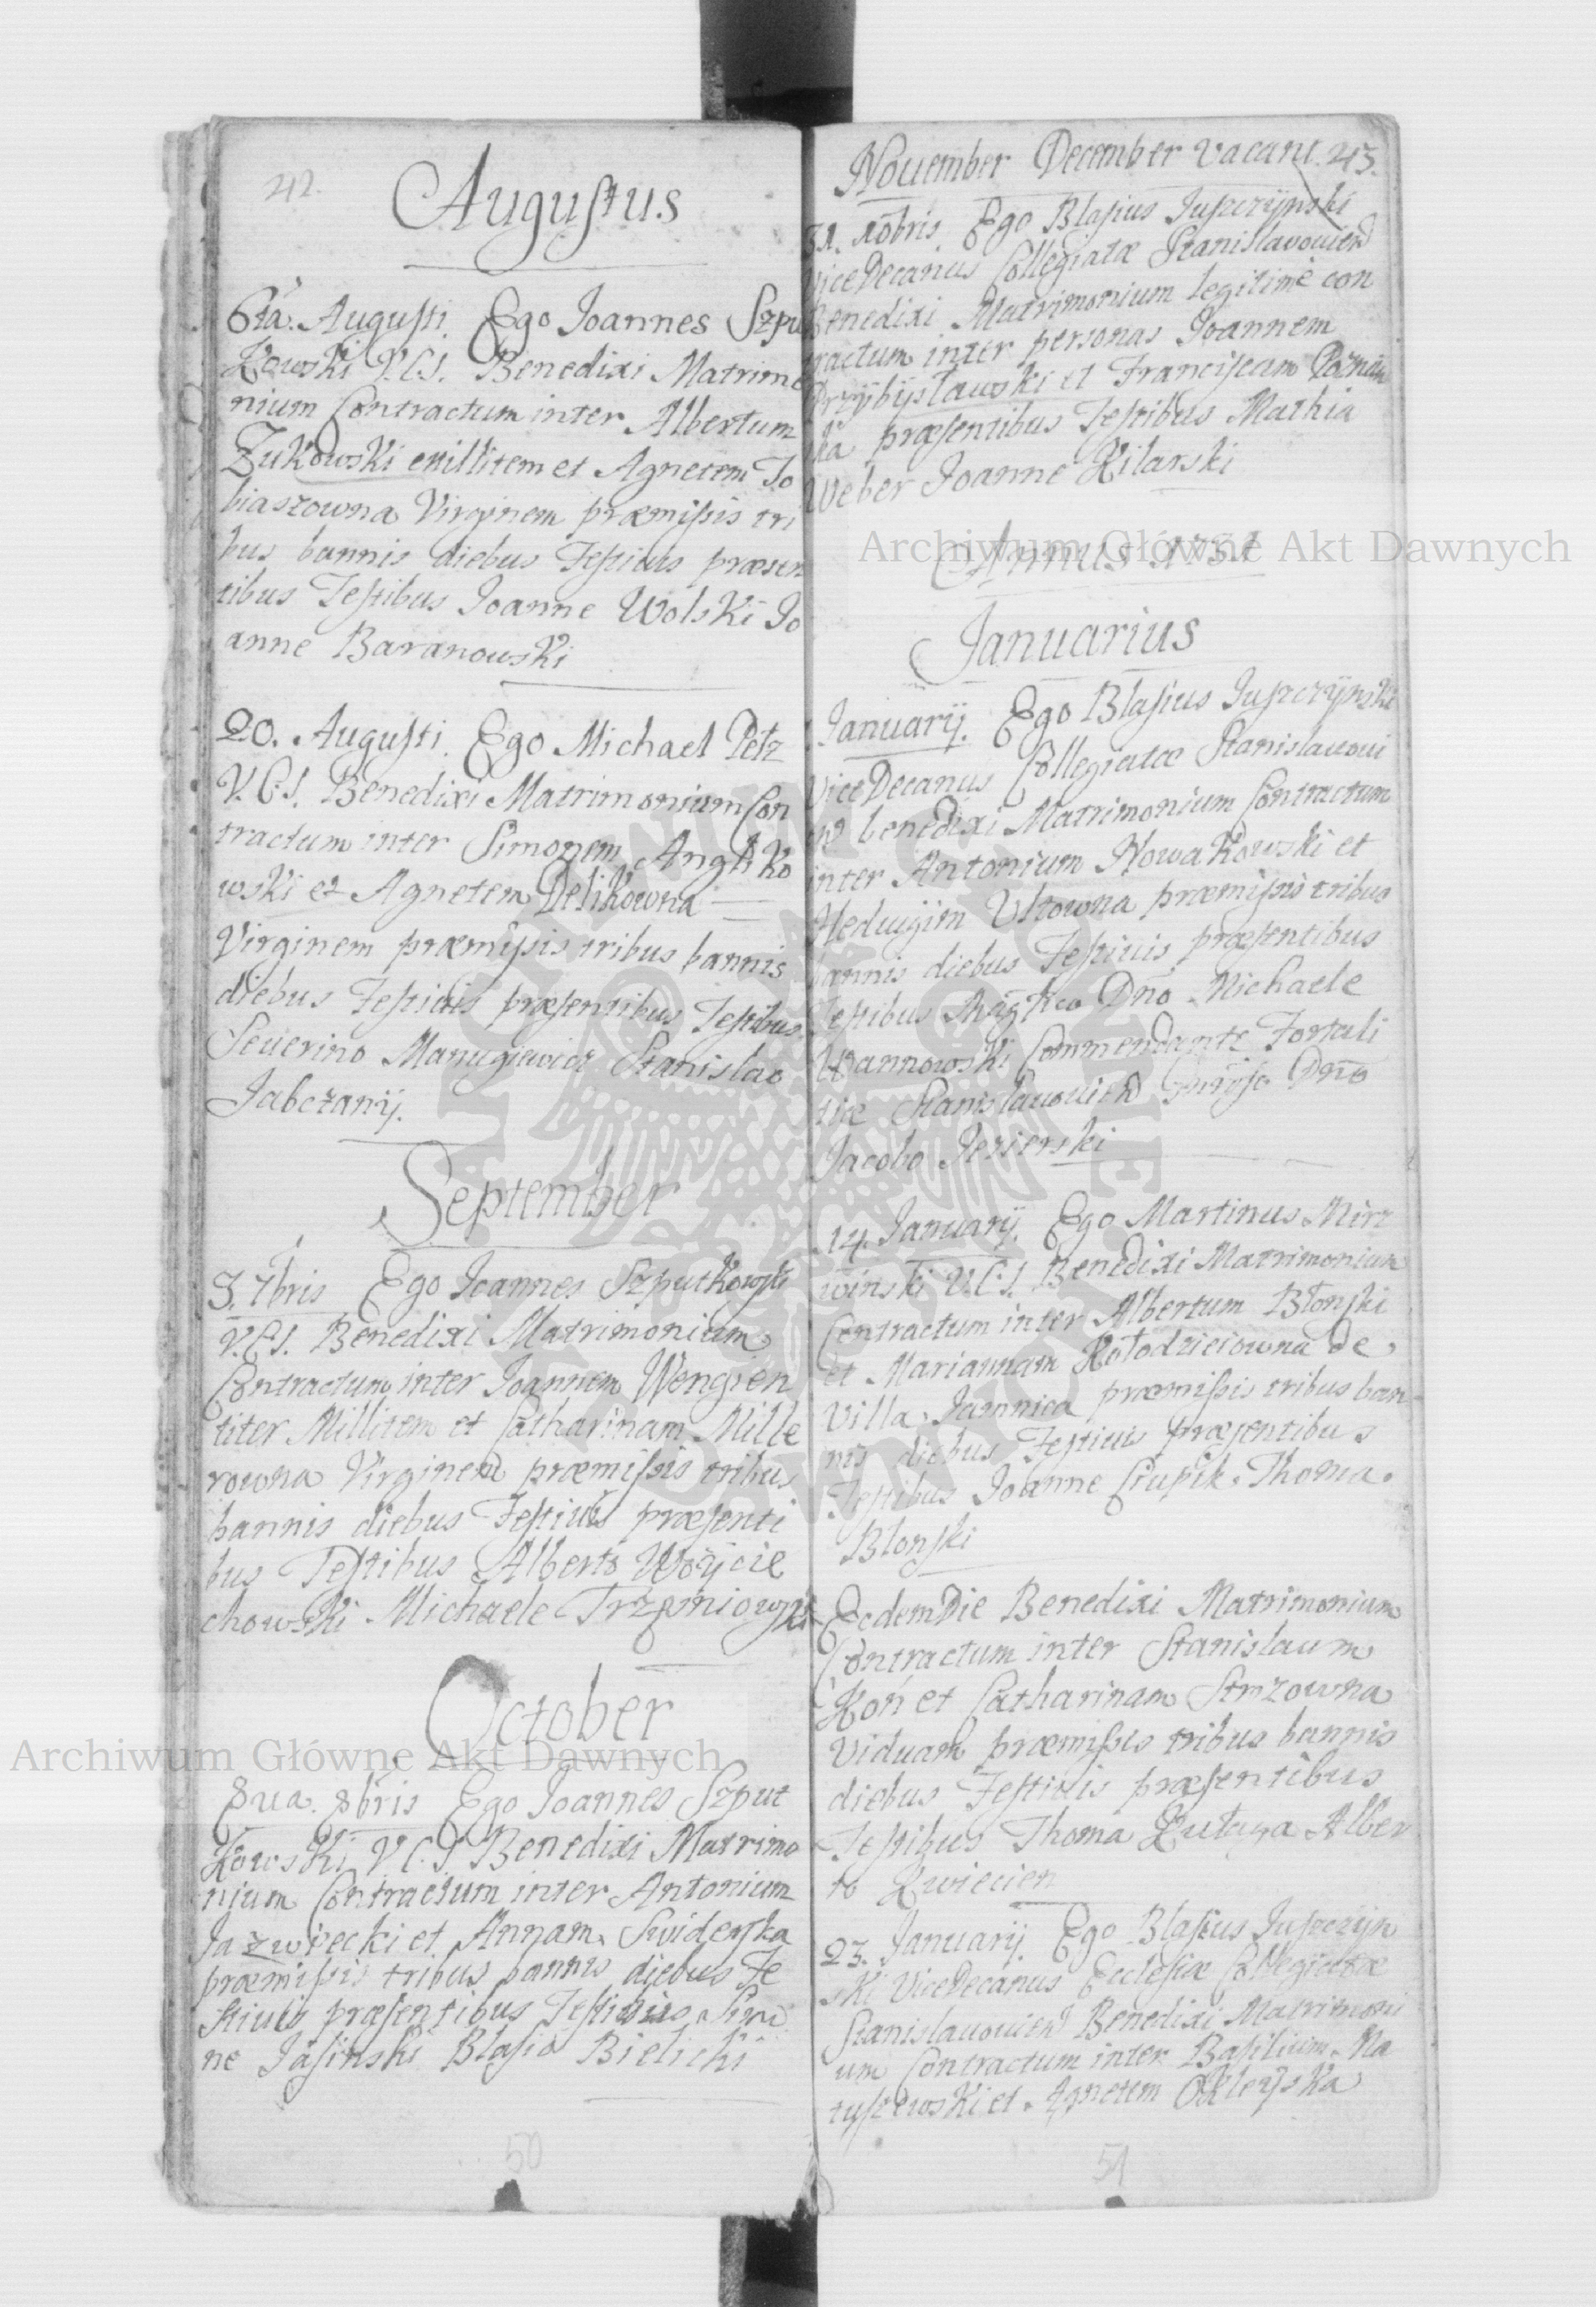 42.
Augustus
6ta. Augusti. Ego Joannes Szpu
Kowski V.C.S. Benedixi Matrimo
nium Contractum inter Albertum
Zukowski millitem et Agnetem To
biaszowna Virginem præmissis tri
bus bannis diebus Festiuis præsen
tibus Testibus Joanne Wolski Jo
anne Baranowski
20. Augusti. Ego Michael Petz
V.C.S. Benedixi Matrimonium Con
tractum inter Simonem Angliko
wski et Agnetem Delikowna
Virginem præmissis tribus bannis
diebus Festiuis præsentibus Testibus
Seuerino Manugiewicz Stanislao
Jabczanij.
September
3. 7bris Ego Joannes Szputkowski
V.C.S. Benedixi Matrimonium
Contractum inter Joannem Wengien
titer Millitem et Catharinam Mille
rowna Virginem præmissis tribus
bannis diebus Festiuis præsenti
bus Testibus Alberto Woÿcie
chowski Michaele
October
8ua. 8bris Ego Joannes Szput
Kowski V.C.S Benedixi Matrimo
nium Contractum inter Antonium
Jazwiecki et Annam Swiderska
præmissis tribus bannis diebus Fe
stiuis præsentibus Testibus
ne Jasinski Blasio Bielicki
50
November December vacant. 43.
31. Xobris Ego Blasius Juszczÿnski
ViceDecanus Collegiatæ Stanislavovien
Benedixi Matrimonium legitimè con
tractum inter personas Joannem
Przÿbÿsławski et Franciscam
ka præsentibus Testibus Mathia
Weber Joanne Kilarski
Annus 1731
Januarius
Januarij. Ego Blasius Juszczÿnski
ViceDecanus Collegiatæ Stanislauovi
en benedixi Matrimonium Contractum
inter Antonium Nowakowski et
Heduigim præmissis tribus
bannis diebus Festiuis præsentibus
Testibus Dno Michaele
Commendante Fortali
tiæ Stanislauovien Dno
Jacobo Jezierski
14. Januarij. Ego Martinus Mirz
winski V.C.S. Benedixi Matrimonium
Contractum inter Albertum Błonski
et Mariannam Kołodzieiowna De
Villa Jamnica præmissis tribus ban
nis diebus Festiuis præsentibus
Testibus Joanne Czupik Thoma
Blonski
Eodem Die Benedixi Matrimonium
Contractum inter Stanislaum
Koń et Catharinam
Viduam præmissis tribus bannis
diebus Festiuis præsentibus
Testibus Thoma Alber
to Kwiecien
23. Januarij. Ego Blasius Juszczÿn
ski ViceDecanus Ecclesiæ Collegiatæ
Stanislauovien Benedixi Matrimoni
um Contractum inter Basilium Ma
tyszewski et Agnetem
51
Archiwum Główne Akt Dawnych
Archiwum Główne Akt Dawnych
ARCHIWUM GŁÓWNE AKT DAWNYCH